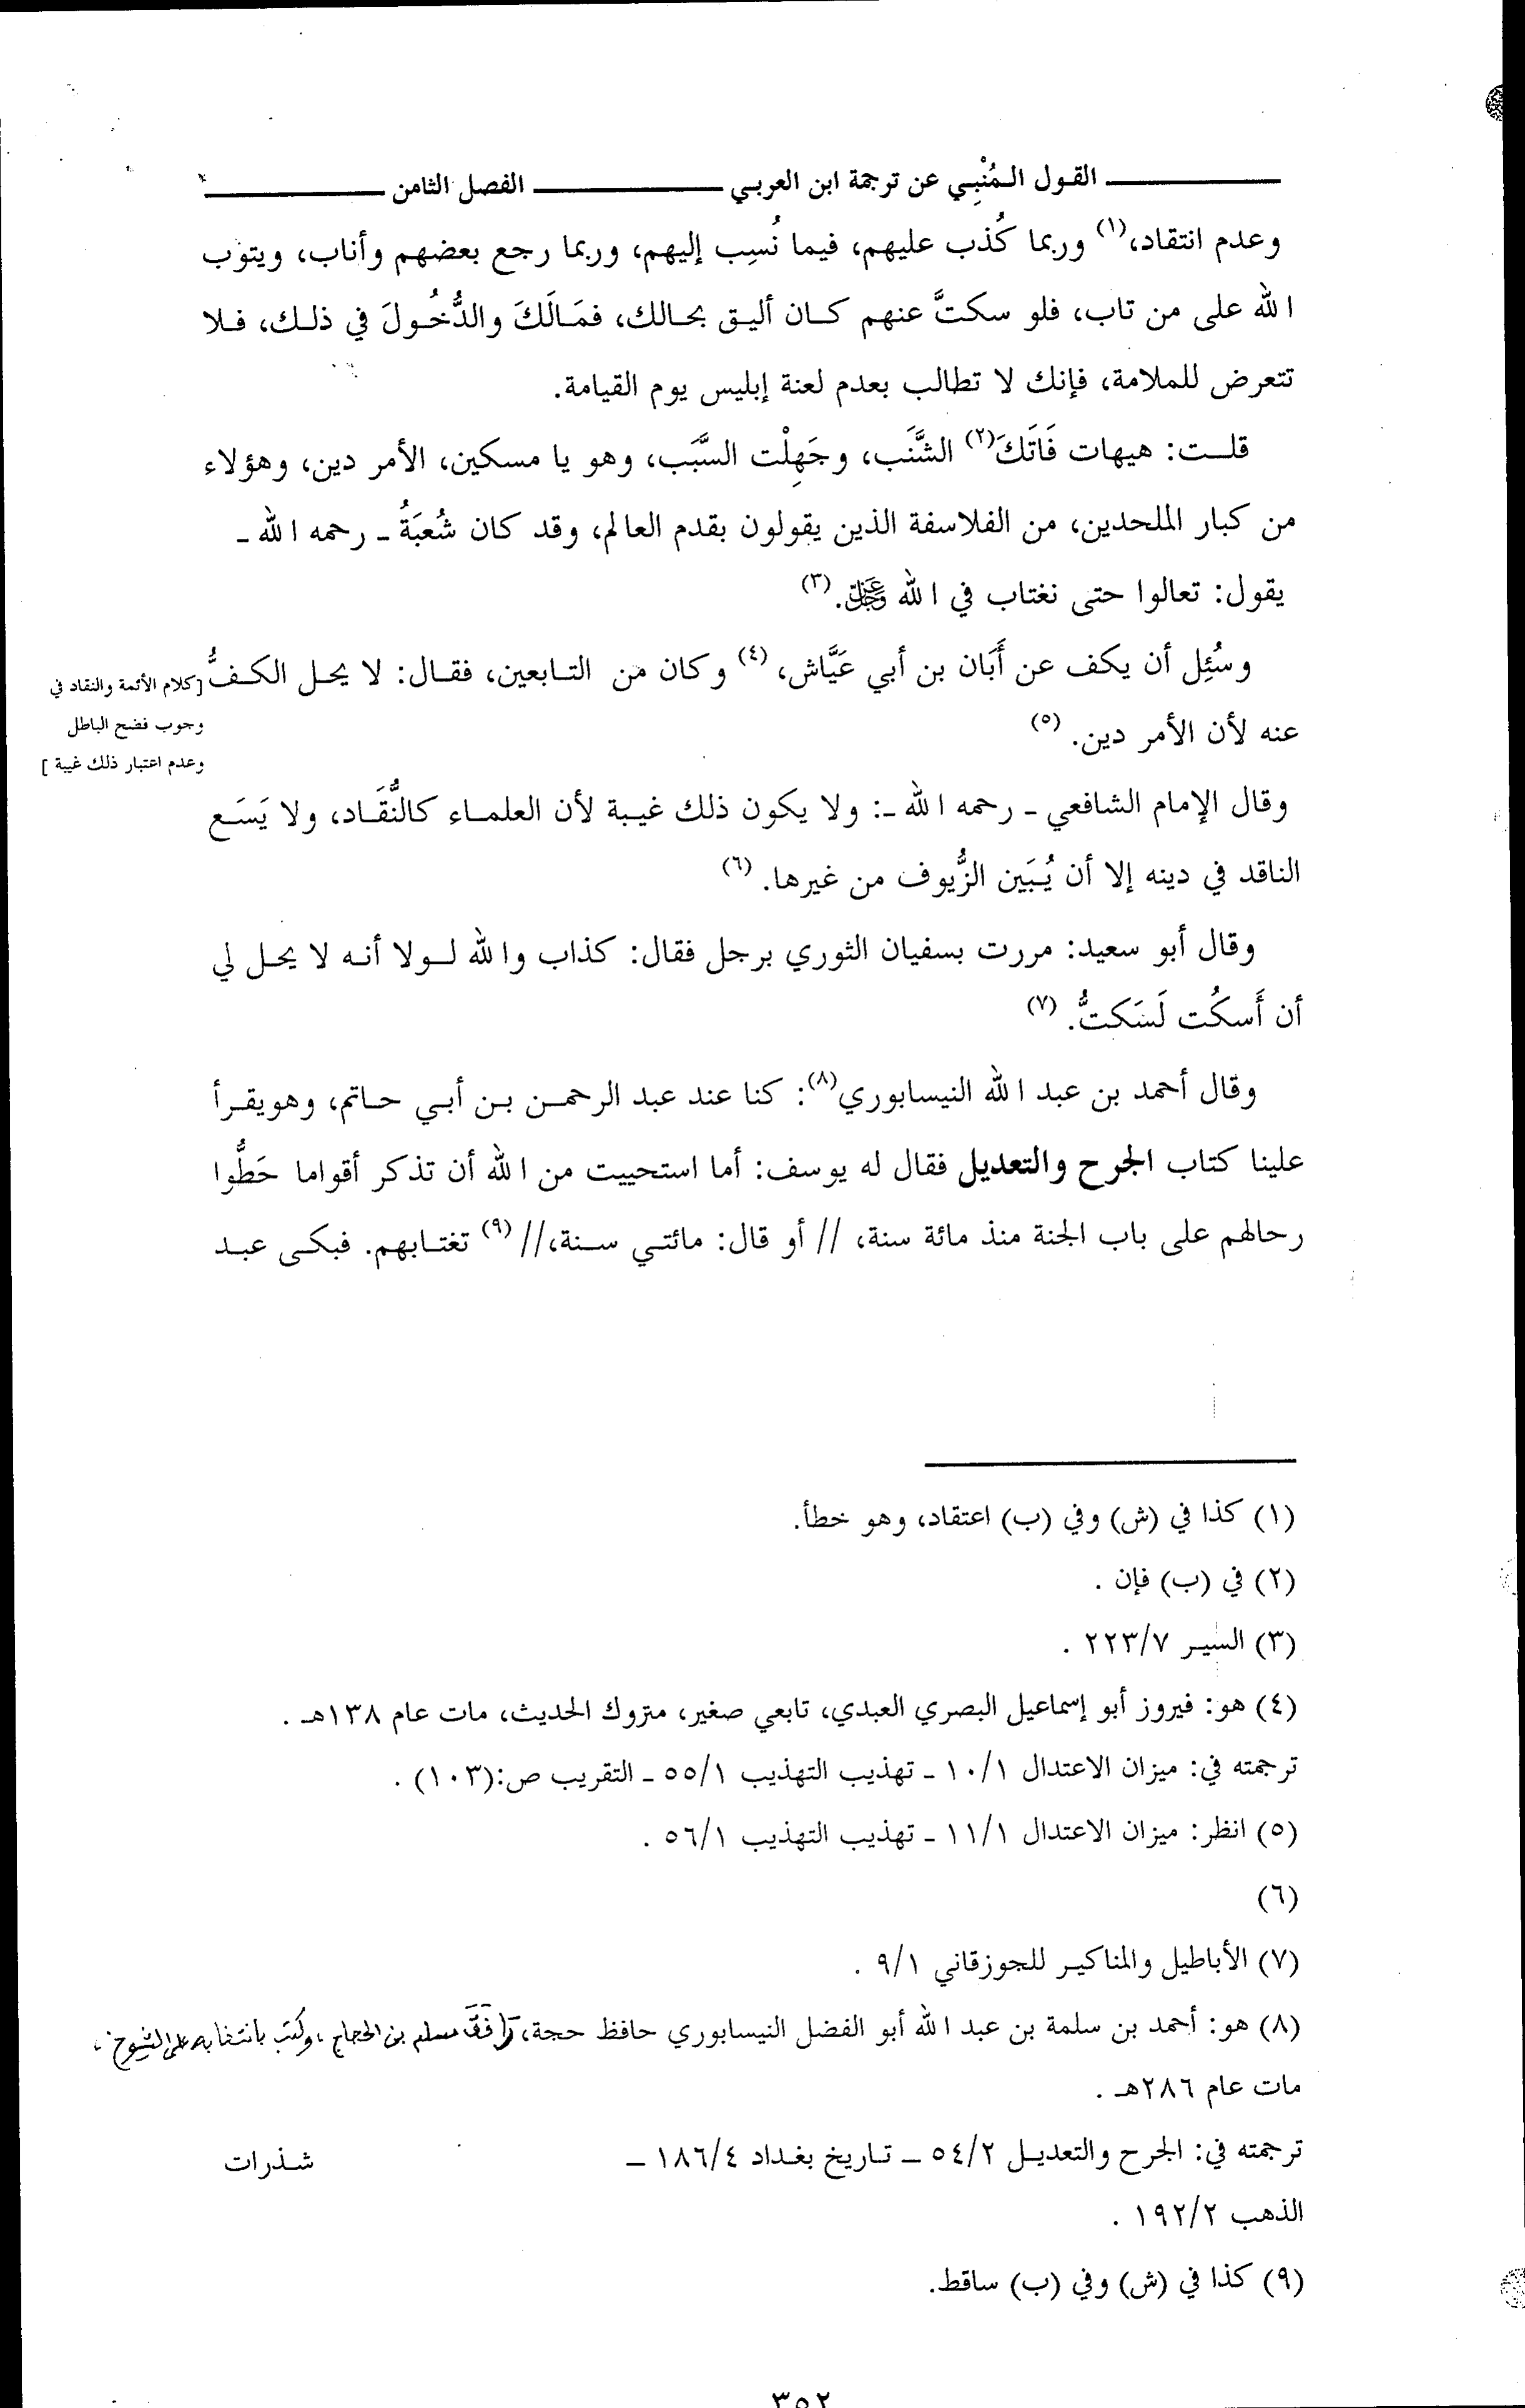 القول الـمُنْبِي عن ترجمة ابن العربي الفصل الثامن
وعدم انتقاد،(١) وربما كُذب عليهم، فيما نُسِب إليهم، وربما رجع بعضهم وأناب، ويتوب
الله على من تاب، فلو سكتَّ عنهم كان أليق بحالك، فمَالَكَ والدُّخُولَ في ذلك، فلا
تتعرض للملامة، فإنك لا تطالب بعدم لعنة إبليس يوم القيامة.
قلت: هيهات فَاتَكَ(٢) الشَّنَب، وجَهِلْت السَّبَب، وهو يا مسكين، الأمر دين، وهؤلاء
من كبار الملحدين، من الفلاسفة الذين يقولون بقدم العالم، وقد كان شُعبَةُ ـ رحمه الله ـ
يقول: تعالوا حتى نغتاب في الله عَزَّ وَجَلَّ.(٣)
وسُئِل أن يكف عن أَبَان بن أبي عَيَّاش،(٤) وكان من التابعين، فقال: لا يحل الكفُّ
[كلام الأئمة والنقاد في
وجوب فضح الباطل
وعدم اعتبار ذلك غيبة ]
عنه لأن الأمر دين.(٥)
وقال الإمام الشافعي ـ رحمه الله ـ: ولا يكون ذلك غيبة لأن العلماء كالنُّقَاد، ولا يَسَع
الناقد في دينه إلا أن يُبَين الزُّيوف من غيرها.(٦)
وقال أبو سعيد: مررت بسفيان الثوري برجل فقال: كذاب والله لولا أنه لا يحل لي
أن أَسكُت لَسَكتُّ.(٧)
وقال أحمد بن عبد الله النيسابوري(٨): كنا عند عبد الرحمن بن أبي حاتم، وهويقرأ
علينا كتاب الجرح والتعديل فقال له يوسف: أما استحييت من الله أن تذكر أقواما حَطُّوا
رحالهم على باب الجنة منذ مائة سنة، // أو قال: مائتي سنة،//(٩) تغتابهم. فبكى عبد
(١) كذا في (ش) وفي (ب) اعتقاد، وهو خطأ.
(٢) في (ب) فإن .
(٣) السير ٢٢٣/٧ .
(٤) هو: فيروز أبو إسماعيل البصري العبدي، تابعي صغير، متروك الحديث، مات عام ١٣٨هـ .
ترجمته في: ميزان الاعتدال ١٠/١ ـ تهذيب التهذيب ٥٥/١ ـ التقريب ص:(١٠٣) .
(٥) انظر: ميزان الاعتدال ١١/١ ـ تهذيب التهذيب ٥٦/١ .
(٦)
(٧) الأباطيل والمناكير للجوزقاني ٩/١ .
(٨) هو: أحمد بن سلمة بن عبد الله أبو الفضل النيسابوري حافظ حجة، رافق مسلم بن الحجاج، وكتب بانتخابه على الشيوخ،
مات عام ٢٨٦هـ .
ترجمته في: الجرح والتعديل ٥٤/٢ ـ تاريخ بغداد ١٨٦/٤ ـ شذرات
الذهب ١٩٢/٢ .
(٩) كذا في (ش) وفي (ب) ساقط.
٣٥٢